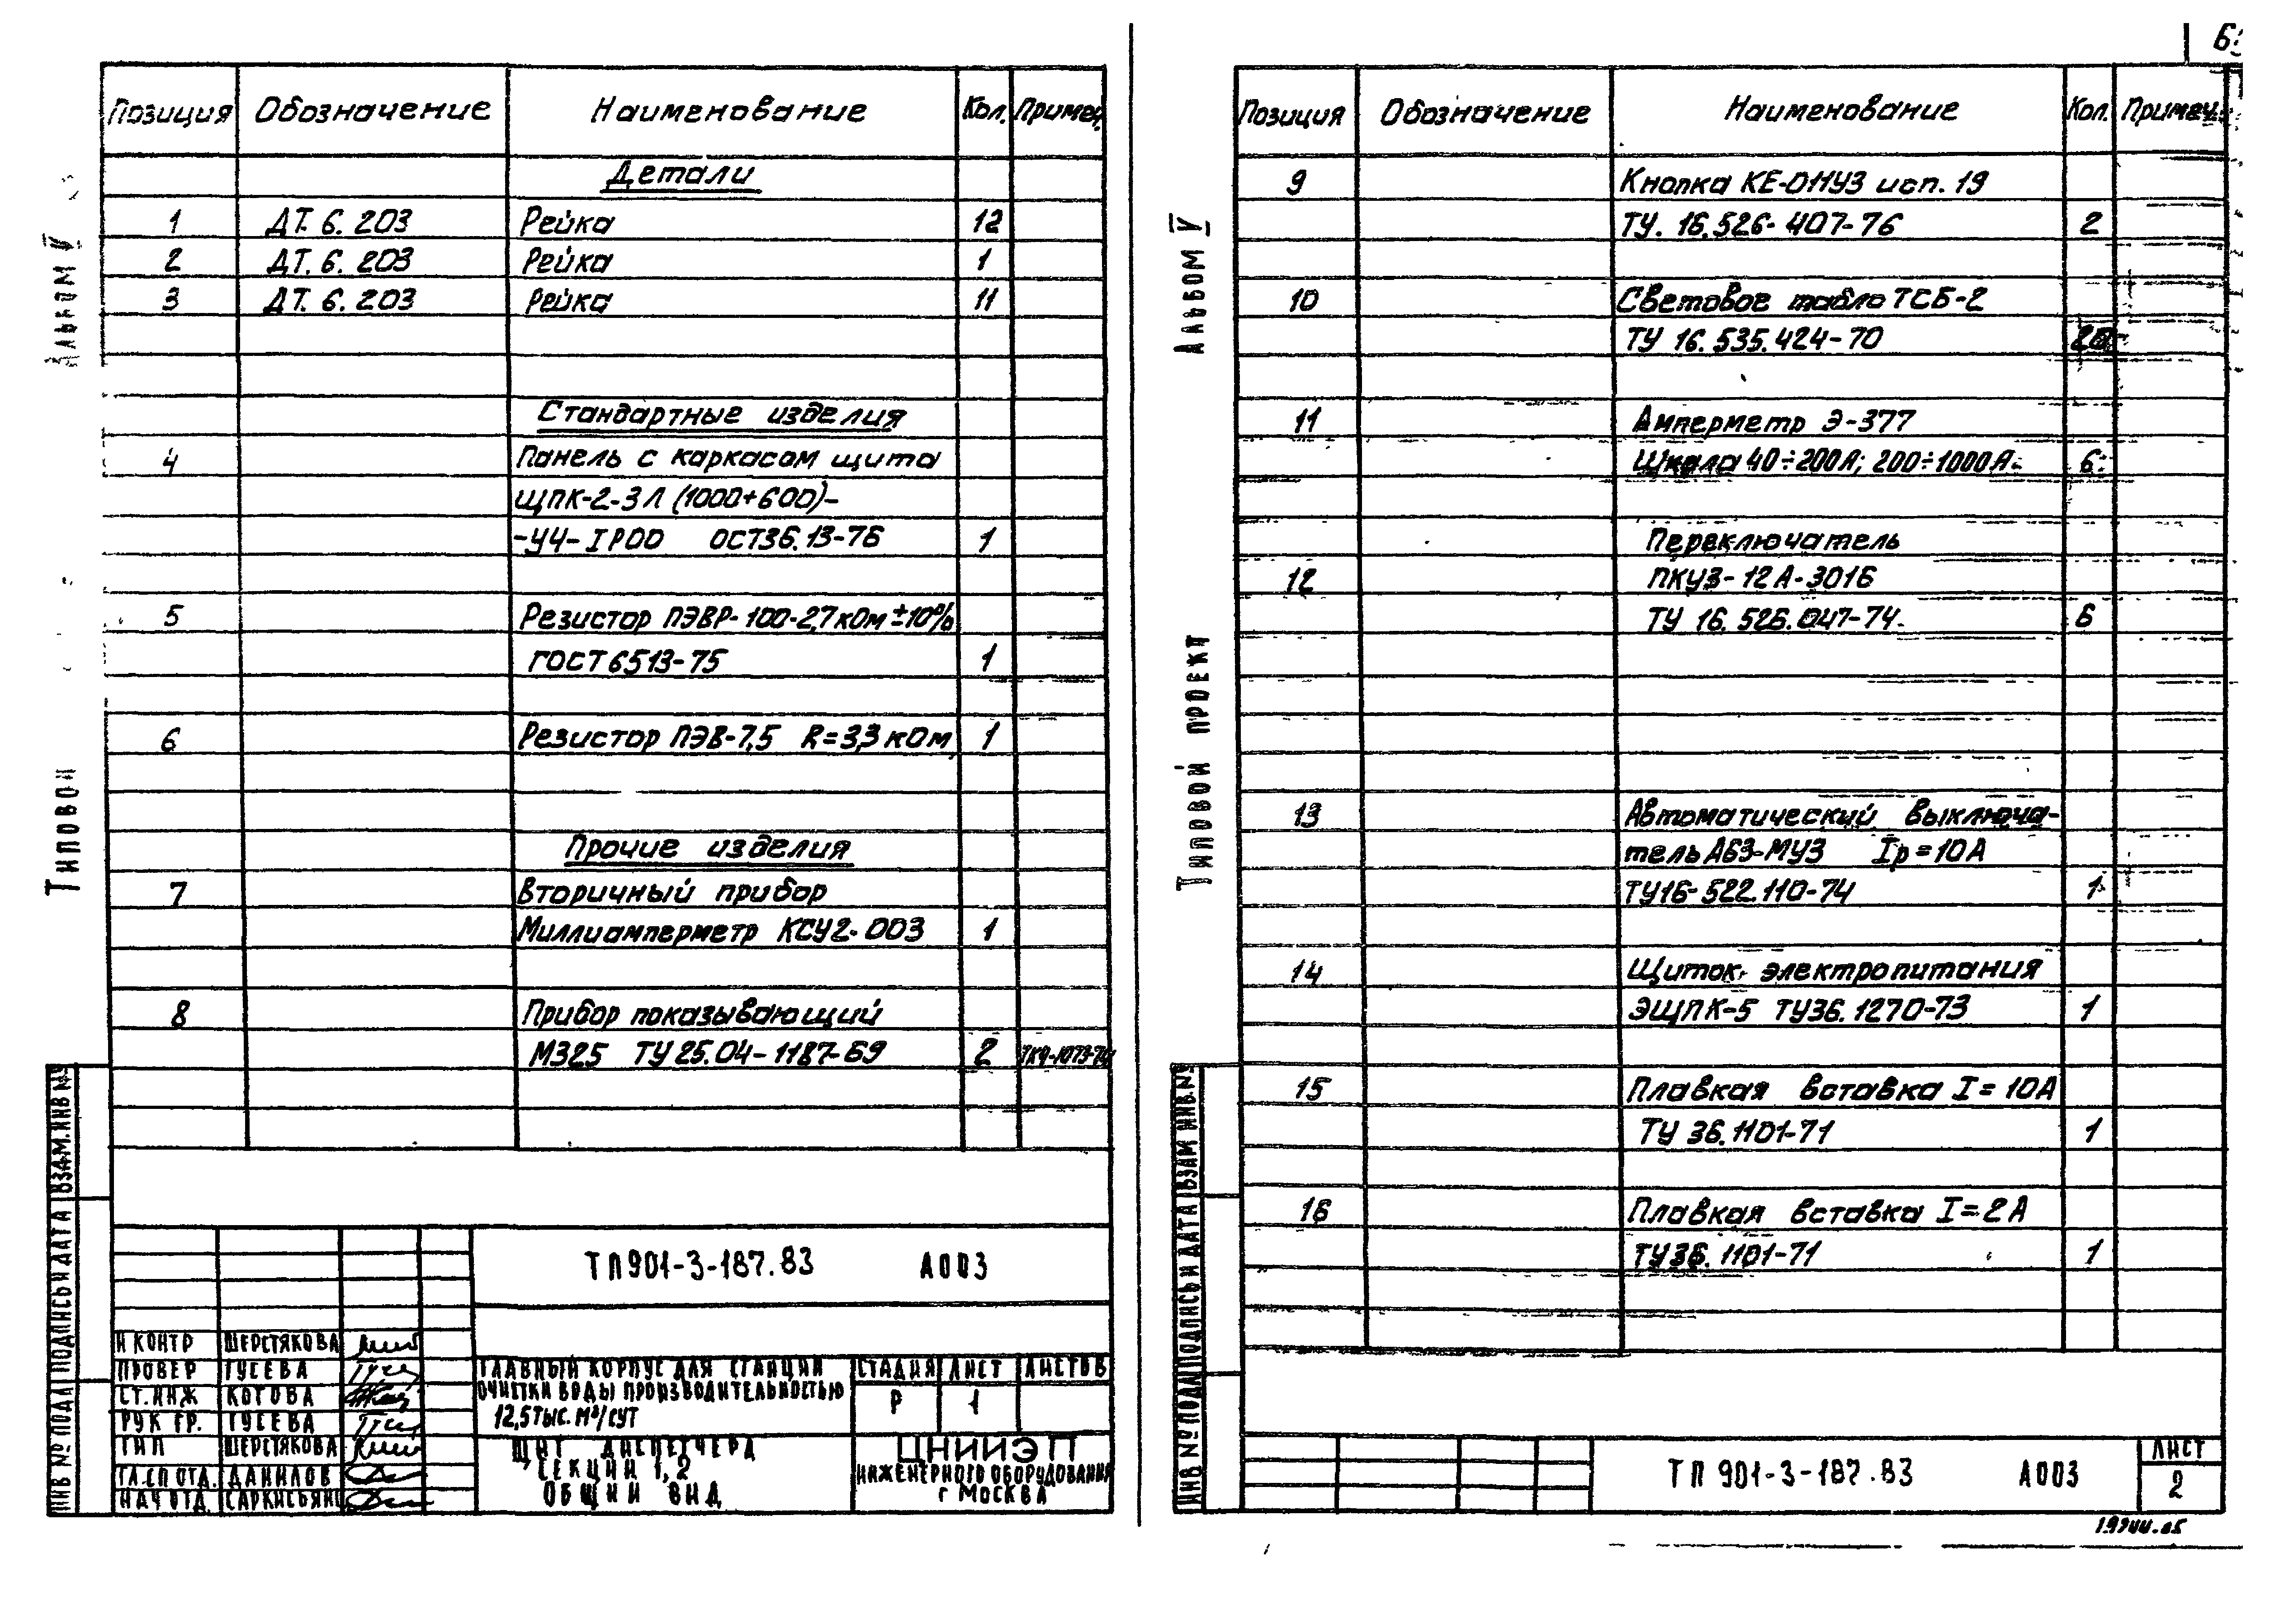 Альбом V
Типовой
Позиция Обозначение Наименование Кол. Примеч.
Детали
1 ДТ. 6. 203 Рейка 12
2 ДТ. 6. 203 Рейка 1
3 ДТ. 6. 203 Рейка 11
Стандартные изделия
4 Панель с каркасом щита
ЩПК-2-3Л (1000+600)-
-У4-IP00 ОСТ36.13-76 1
5 Резистор ПЭВР-100-2,7кОм ±10%
ГОСТ 6513-75 1
6 Резистор ПЭВ-7,5 R=3,3 кОм 1
Прочие изделия
7 Вторичный прибор
Миллиамперметр КСУ2-003 1
8 Прибор показывающий
М325 ТУ 25.04-1187-69 2
ИНВ № ПОДЛ ПОДПИСЬ И ДАТА ВЗАМ. ИНВ №
ТП901-3-187.83 А003
Н КОНТР ШЕРСТЯКОВА
ПРОВЕР ГУСЕВА
СТ. ИНЖ КОТОВА
РУК ГР. ГУСЕВА
ГИП ШЕРСТЯКОВА
ГЛ.СП ОТД. ДАНИЛОВ
НАЧ ОТД САРКИСЬЯНЦ
ГЛАВНЫЙ КОРПУС ДЛЯ СТАНЦИИ
ОЧИСТКИ ВОДЫ ПРОИЗВОДИТЕЛЬНОСТЬЮ
12,5 ТЫС. М³/СУТ
СТАДИЯ ЛИСТ ЛИСТОВ
Р 1
ЩИТ ДИСПЕТЧЕРА
СЕКЦИИ 1, 2
ОБЩИЙ ВИД
ЦНИИЭП
ИНЖЕНЕРНОГО ОБОРУДОВАНИЯ
г МОСКВА
Альбом V
Типовой проект
Позиция Обозначение Наименование Кол. Примеч.
9 Кнопка КЕ-011У3 исп. 19
ТУ. 16.526-407-76 2
10 Световое табло ТСБ-2
ТУ 16.535.424-70
11 Амперметр Э-377
Шкала 40÷200А; 200÷1000А 6
Переключатель
12 ПКУ3-12А-3016
ТУ 16.526.047-74 6
13 Автоматический выключа-
тель А63-МУ3 Iр=10А
ТУ16-522.110-74 1
14 Щиток электропитания
ЭЩПК-5 ТУ36.1270-73 1
15 Плавкая вставка I=10А
ТУ 36.1101-71 1
16 Плавкая вставка I=2А
ТУ36.1101-71 1
ИНВ № ПОДЛ ПОДПИСЬ И ДАТА ВЗАМ ИНВ. №
ТП 901-3-187.83 А003
ЛИСТ
2